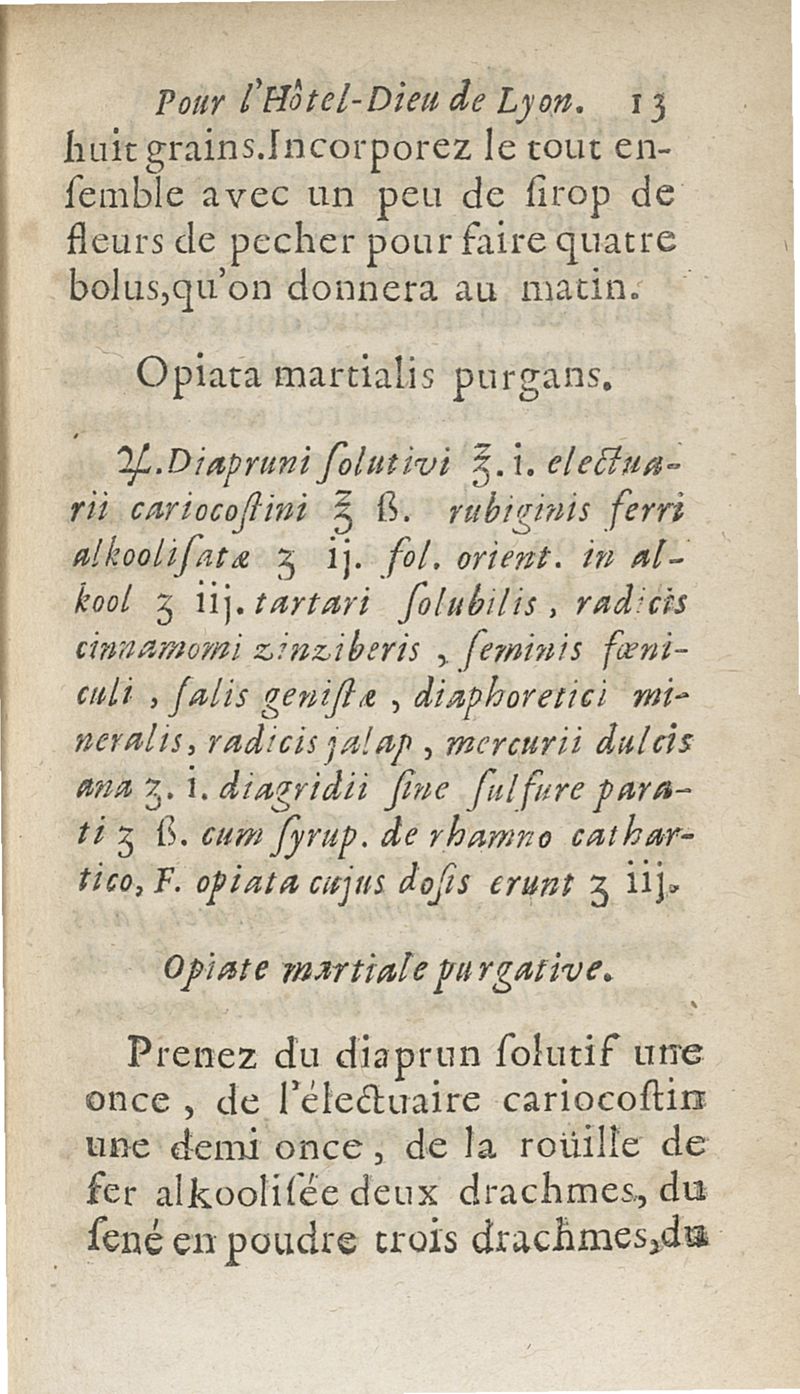 Pour l'Hôtel-Dieu de Lyon. 13
huit grains.Incorporez le tout en-
ſemble avec un peu de ſirop de
fleurs de pecher pour faire quatre
bolus,qu'on donnera au matin.
Opiata martialis purgans.
♃.Diapruni ſolutivi ℥. i. electua-
rii cariocoſtini ℥ ß. rubiginis ferri
alkooliſatæ ʒ ij. fol. orient. in al-
kool ʒ iij. tartari ſolubilis, radicis
cinnamomi zinziberis, ſeminis fœni-
culi, ſalis geniſtæ, diaphoretici mi-
neralis, radicis jalap, mercurii dulcis
ana ʒ. i. diagridii ſine ſulfure para-
ti ʒ ß. cum ſyrup. de rhamno cathar-
tico, F. opiata cujus doſis erunt ʒ iij.
Opiate martiale purgative.
Prenez du diaprun ſolutif une
once, de l'électuaire cariocoſtin
une demi once, de la roüille de
fer alkooliſée deux drachmes, du
ſené en poudre trois drachmes,du